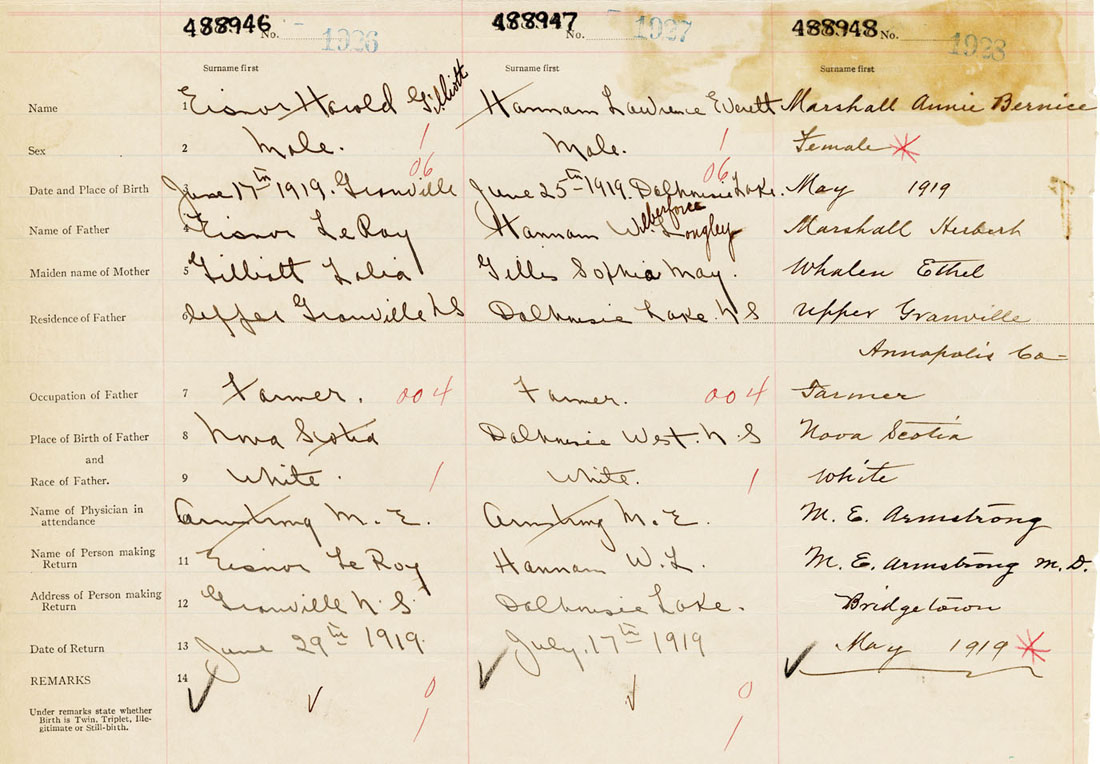 488946 No. 1926 488947 No. 1927 488948 No. 1928
Surname first Surname first Surname first
Name 1 Eisnor Harold Gilliott Hannam Lawrence Everett Marshall Annie Bernice
Sex 2 Male. 1 Male. 1 Female
06 06
Date and Place of Birth 3 June 17th 1919. Granville June 25th 1919. Dalhousie Lake. May 1919
Name of Father 4 Eisnor LeRoy Hannam Wilberforce Longley Marshall Herbert
Maiden name of Mother 5 Gilliott Lelia Gillis Sophia May. Whalen Ethel
Residence of Father 6 Upper Granville NS Dalhousie Lake. N S Upper Granville
Annapolis Co-
Occupation of Father 7 Farmer. 004 Farmer. 004 Farmer
Place of Birth of Father 8 Nova Scotia Dalhousie West. N. S Nova Scotia
and
Race of Father. 9 White. 1 White. 1 White
Name of Physician in
attendance Armstrong M. E. Armstrong M. E. M. E. Armstrong
Name of Person making
Return 11 Eisnor LeRoy Hannam W. L. M. E. Armstrong M. D.
Address of Person making
Return 12 Granville N. S. Dalhousie Lake. Bridgetown
Date of Return 13 June 29th 1919. July. 17th 1919 May 1919
REMARKS 14
0 0
Under remarks state whether
Birth is Twin, Triplet, Ille-
gitimate or Still-birth. 1 1